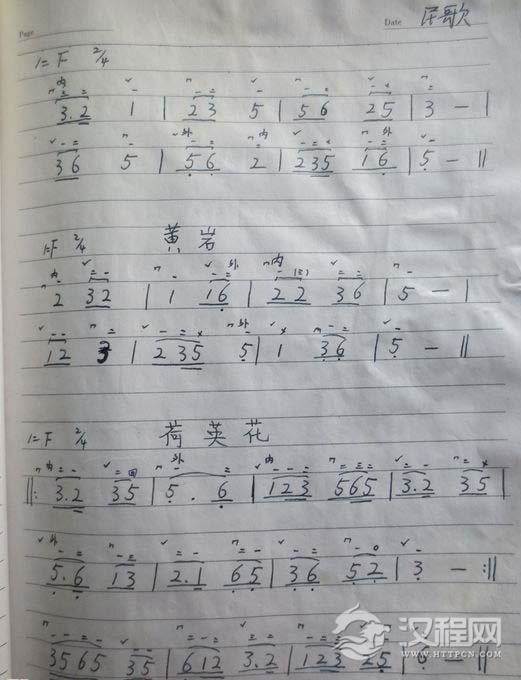 Page
Date 民歌
1=F 2/4
3.2 1 | 23 5 | 56 25 | 3 — |
36 5 | 56 2 | 235 16 | 5 — ‖
1=F 2/4 黄岩
2 32 | 1 16 | 22 36 | 5 — |
12 3 | 235 5 | 1 36 | 5 — ‖
1=F 2/4 荷英花
‖: 3.2 35 | 5. 6 | 123 565 | 3.2 35 |
5.6 13 | 2.1 65 | 36 52 | 3 — :‖
3565 35 | 612 3.2 | 123 25 |
汉程网
WWW.HTTPCN.COM